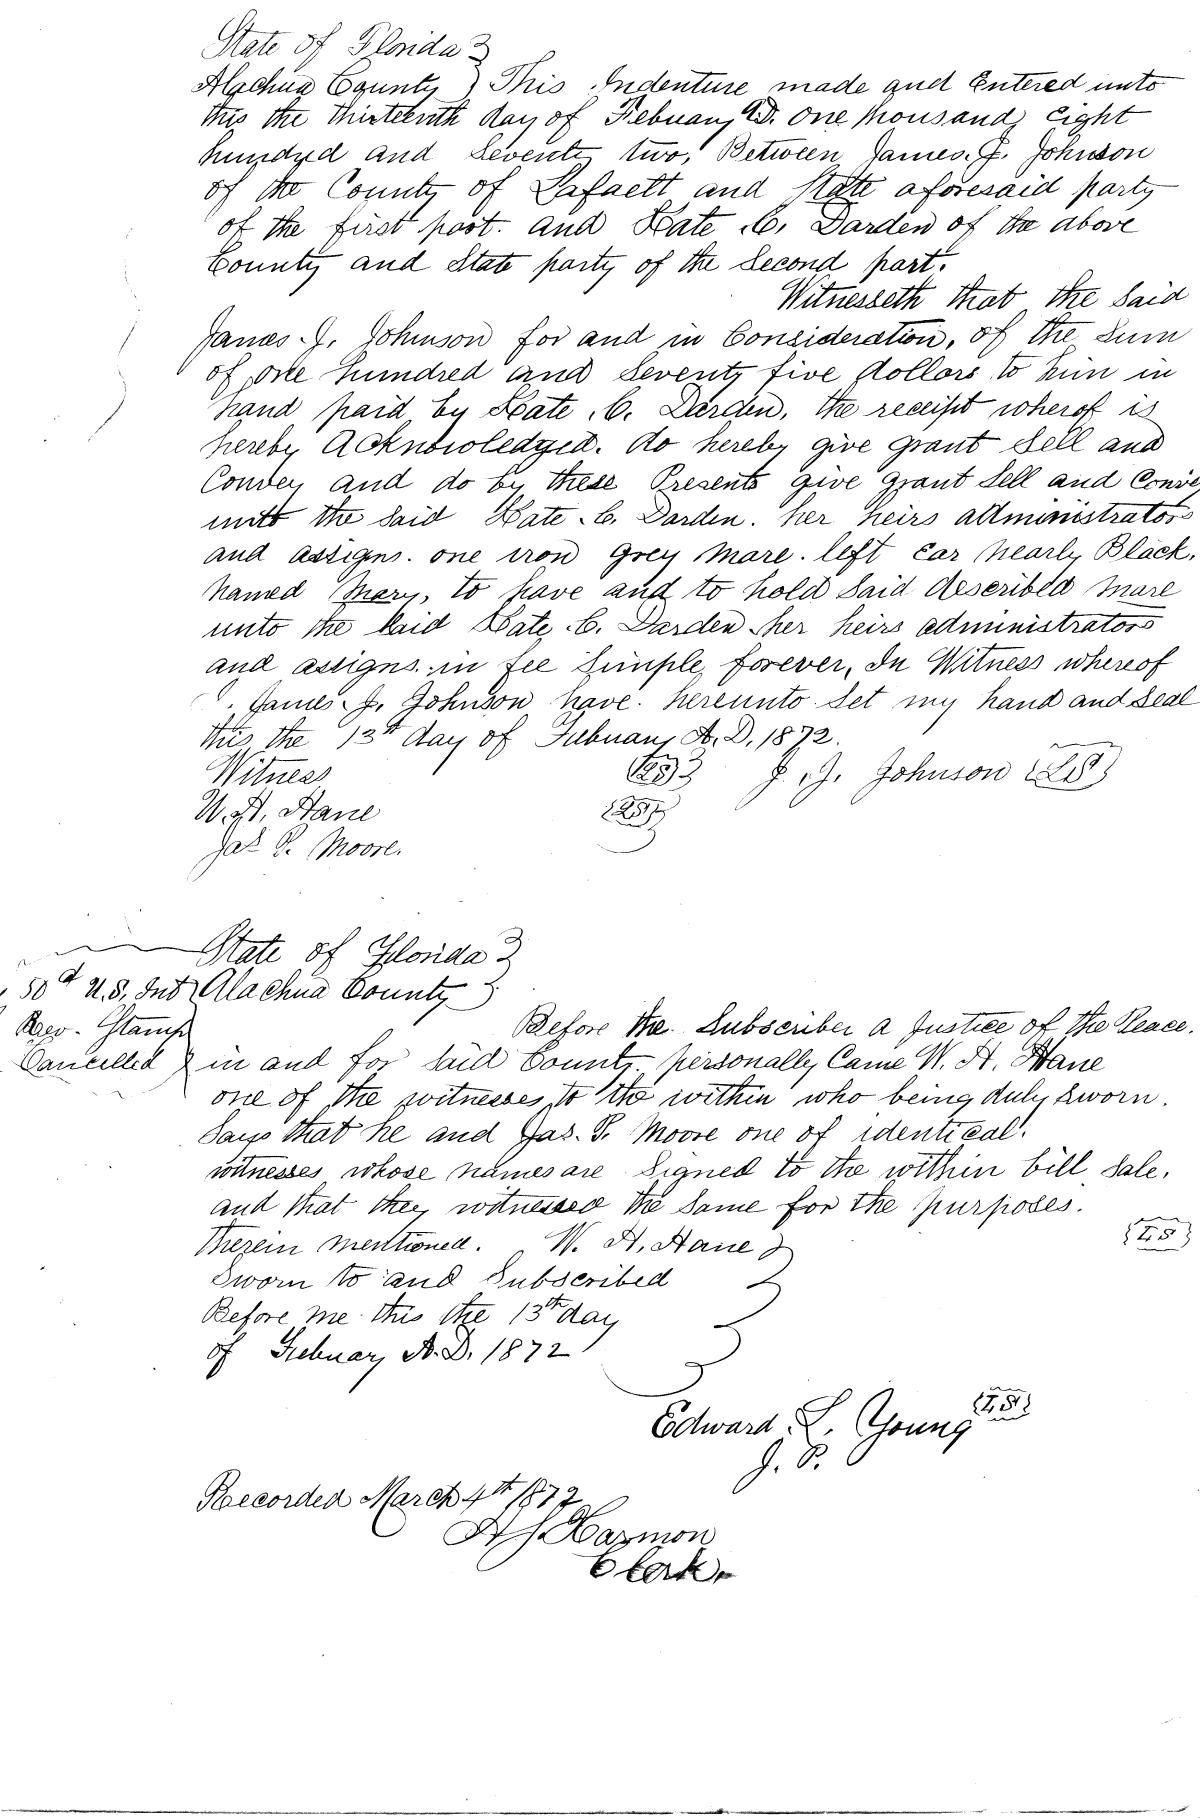 State of Florida }
Alachua County } This Indenture made and Entered unto
this the thirteenth day of Febuary A.D. One thousand, Eight
hundred and Seventy two, Between James. J. Johnson
of the County of Lafaett and State aforesaid party
of the first part. and Kate C. Darden of the above
County and State party of the Second part.
Witnesseth that the Said
James J. Johnson for and in Consideration, of the Sum
of one hundred and Seventy five dollars to him in
hand paid by Kate. C. Darden, the receipt wherof is
hereby Acknowledged. do hereby give grant Sell and
Convey and do by these Presents give grant Sell and Convey
unto the Said Kate. C. Darden. her heirs administrators
and assigns. one iron Grey Mare. left Ear nearly Black,
named Mary, to have and to hold Said described mare
unto the Said Kate. C. Darden her heirs administrators
and assigns. in fee Simple, forever, In Witness whereof
James J. Johnson have. hereunto Set my hand and Seal
this the 13th day of Febuary A. D. 1872.
Witness {LS} J. J. Johnson {LS}
W. H. Hane {LS}
Jas P. Moore.
State of Florida }
50ct U.S. Int Alachua County }
Rev. Stamp Before the Subscriber a Justice of the Peace.
Cancelled } in and for Said County personally Came W. H. Hane
one of the witnesses to the within who being duly Sworn.
Says that he and Jas. P. Moore one of identical.
witnesses whose names are Signed to the within bill Sale.
and that they witnessed the Same for the purposes.
therein mentioned. W. H. Hane } {LS}
Sworn to and Subscribed }
Before me this the 13th day }
of Febuary A. D. 1872 }
Edward L. Young {LS}
J. P.
Recorded March 4th 1872
Harmon
Clerk.